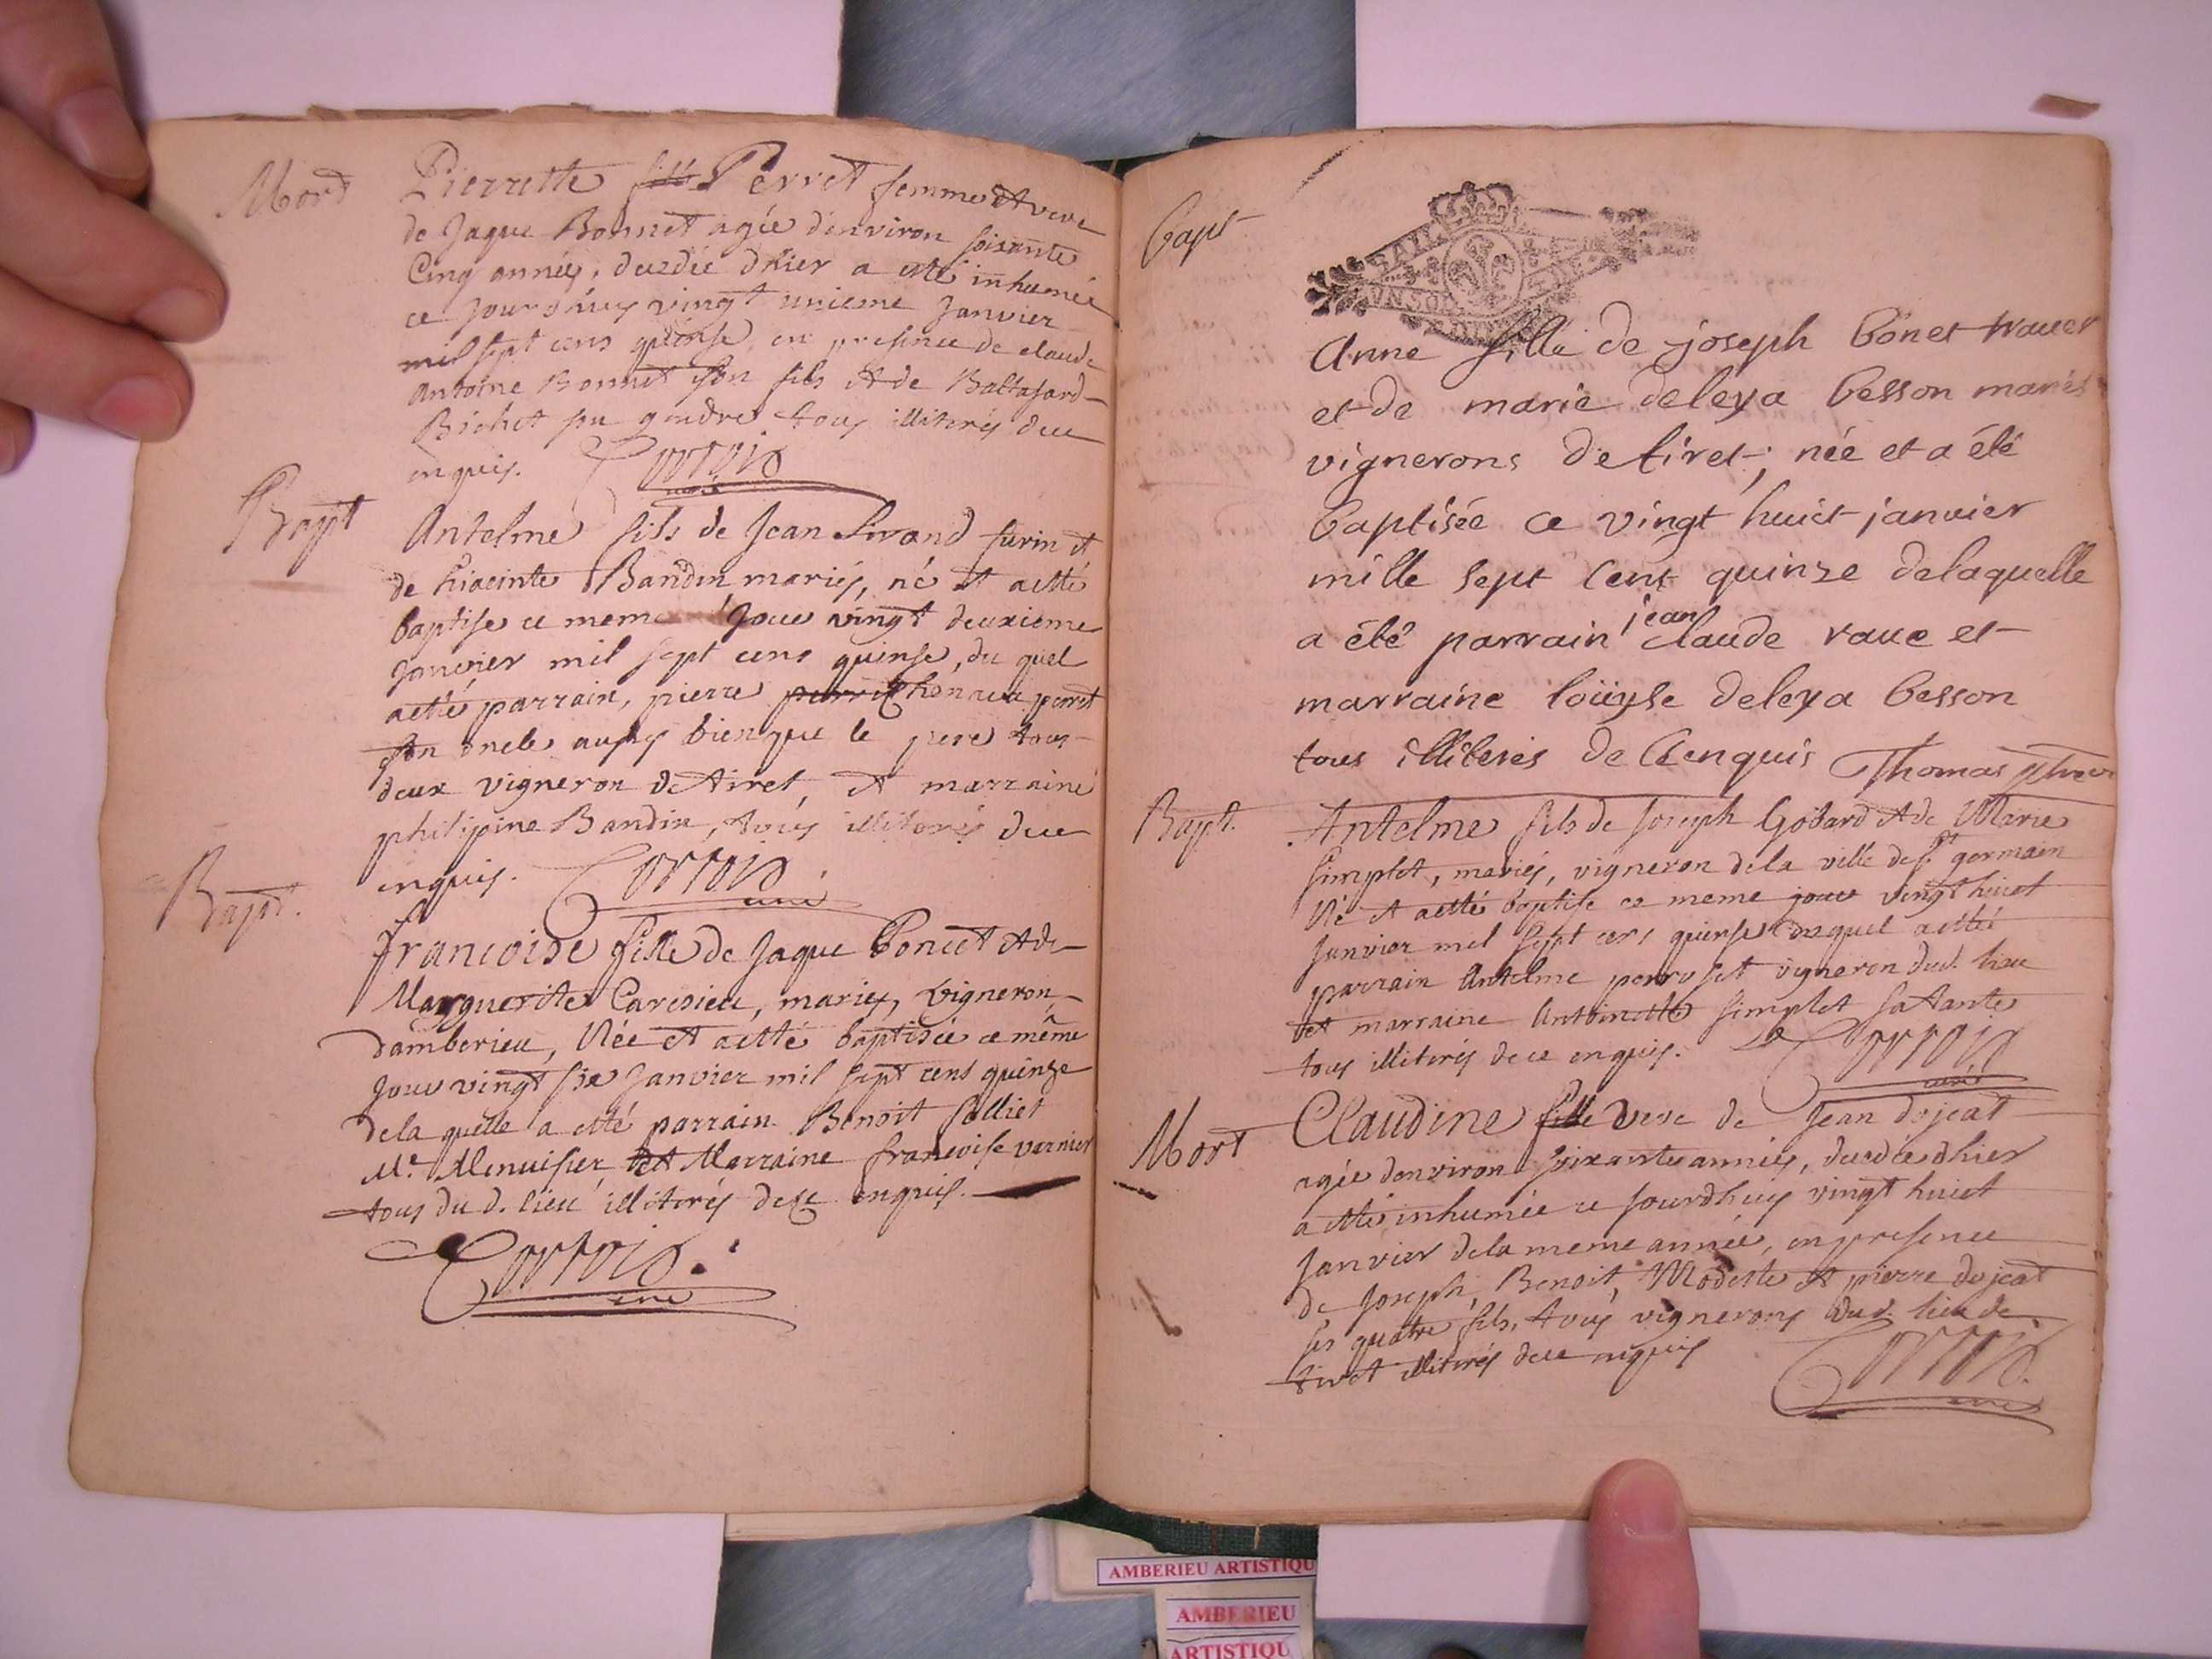 Mort
Pierrette fille Perret femme et veve
de Jaque Bonnet agée d'environ soisante
Cinq années, decedée d'hier a esté inhumée
ce jourd'huy vingt unieme Janvier
mil sept cens quinse, en presence de claude
Antoine Bonnet son fils et de Baltasard
Bichet son gendre tous illiterés de ce
enquis.
Cortois
curé
Bapt
Antelme fils de Jean Sirand surin et
de hiacinte Bandin mariés, né et a etté
baptise ce meme Jour vingt deuxieme
Janvier mil sept cens quinse, du quel
a etté parrain, pierre perret
son oncle aussy bien que le pere tous
deux vigneron de tiret, et marraine
philipine Bandin, tous illiterés de ce
enquis.
Cortois
curé
Bapt.
francoise fille de Jaque Poncet et de
Marguerite Caresieu, mariés, vigneron
d'amberieu, Née et a etté baptisée ce même
Jour vingt six Janvier mil sept cens quinze
de la quelle a etté parrain Benoit Solliet
Me. Menuisier, et Marraine francoise varnier
tous du d. lieu illiterés de ce enquis.
Cortois
curé
Bapt
GEN
UN SOL
Anne fille de joseph bonet traver
et de marie deleya besson mariés
vignerons de tiret; née et a été
baptisée ce vingt huict janvier
mille sept cent quinze de laquelle
jean
a été parrain claude rave et
marraine loüyse deleya besson
tous illiterés de ce enquis Thomas
Bapt.
Antelme fils de Joseph Gobard et de Marie
simplet, mariés, vigneron de la ville de st germain
Né et a etté baptise ce meme jour vingt huict
Janvier mil sept cens quinse duquel a etté
parrain Antelme perroset vigneron dud. lieu
et marraine Antoinette simplet sa tante
tous illiterés de ce enquis.
Cortois
curé
Mort
Claudine fille veve de Jean dejeat
agée d'environ soixante années, decedée d'hier
a etté inhumée ce Jourdhuy vingt huict
Janvier de la meme année, en presence
de Joseph, Benoit, Modeste et pierre dejeat
ses quatre fils, tous vignerons dud. lieu de
tiret illiterés de ce enquis
Cortois
curé
AMBERIEU ARTISTIQU
AMBERIEU
ARTISTIQU